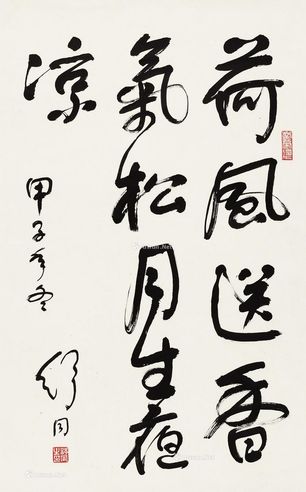 荷風送香
氣松月生夜
涼
甲子年冬
舒同